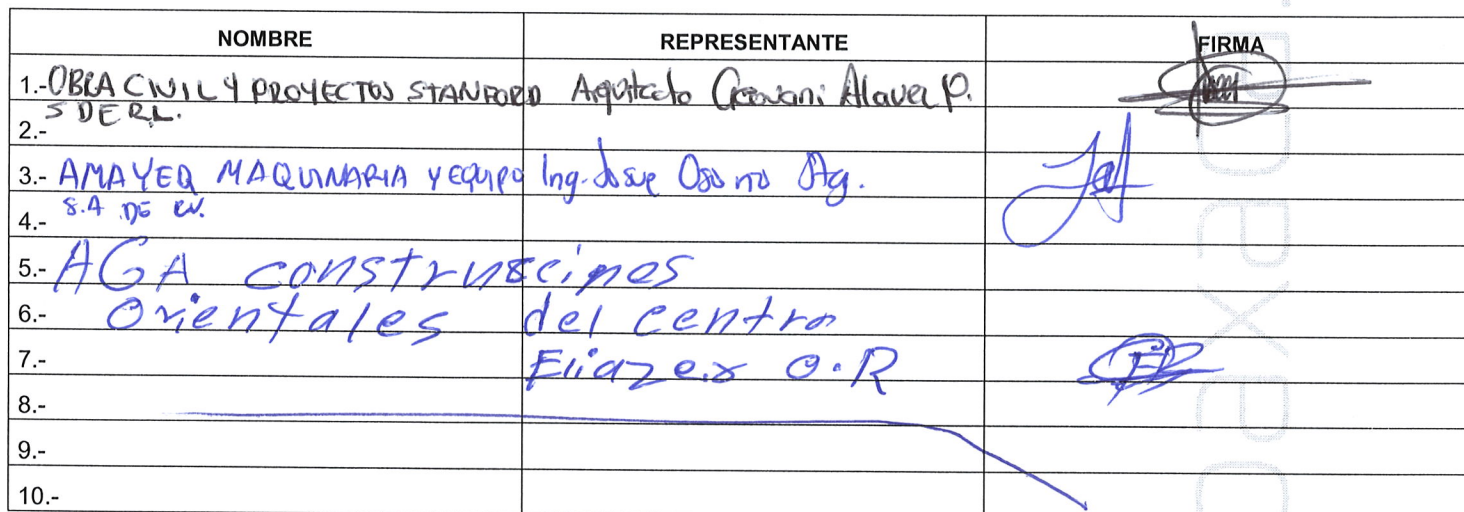 NOMBRE REPRESENTANTE FIRMA
1.- OBRA CIVIL Y PROYECTOS STANFORD Aquitecto Geovani Alavez P.
S DE R.L.
2.-
3.- AMAYER MAQUINARIA Y EQUIPO Ing. Josue Osorno Ag.
S.A DE CV.
4.-
5.- AGA construscipnes
6.- Orientales del centro
7.- Eliazer O.R
8.-
9.-
10.-